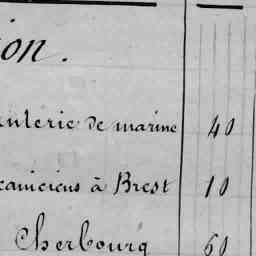 ion.
anterie de marine 40
caniciens à Brest 10
Cherbourg 60